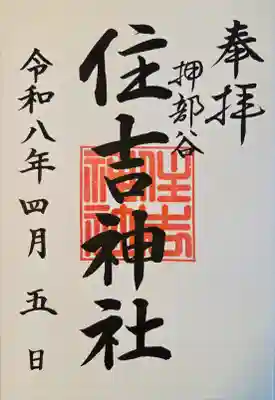 奉拝
押部谷
住吉神社
住吉神社
令和八年四月五日